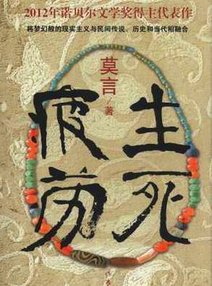 2012年诺贝尔文学奖得主代表作
将梦幻般的现实主义与民间传说、历史和当代相融合
莫言
/著
生死
疲劳